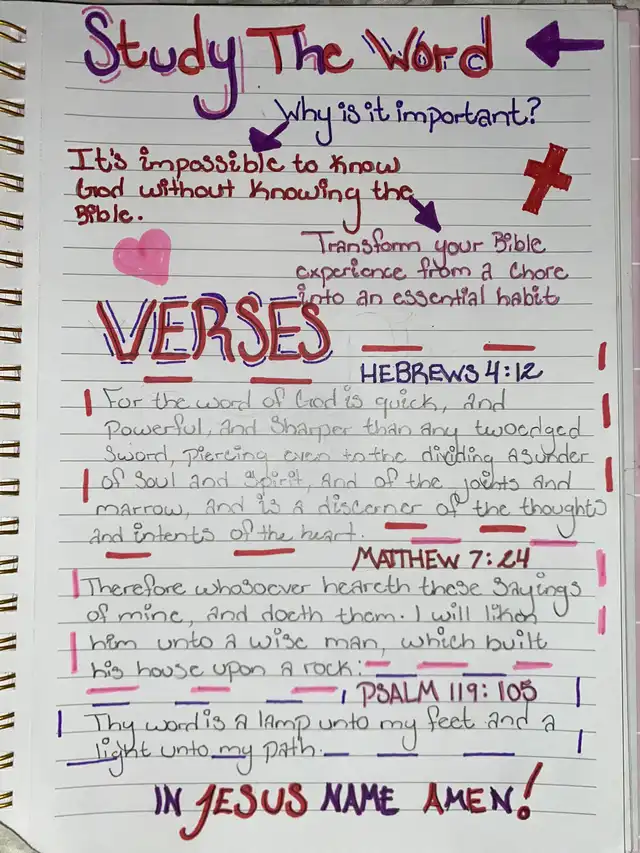 Study The Word
Why is it important?
It's impossible to know
God without knowing the
Bible.
Transform your Bible
experience from a chore
into an essential habit
VERSES
HEBREWS 4:12
For the word of God is quick, and
powerful, and sharper than any twoedged
sword, piercing even to the dividing asunder
of soul and spirit, and of the joints and
marrow, and is a discerner of the thoughts
and intents of the heart.
MATTHEW 7:24
Therefore whosoever heareth these sayings
of mine, and doeth them. I will liken
him unto a wise man, which built
his house upon a rock:
PSALM 119:105
Thy word is a lamp unto my feet and a
light unto my path.
IN JESUS NAME AMEN!